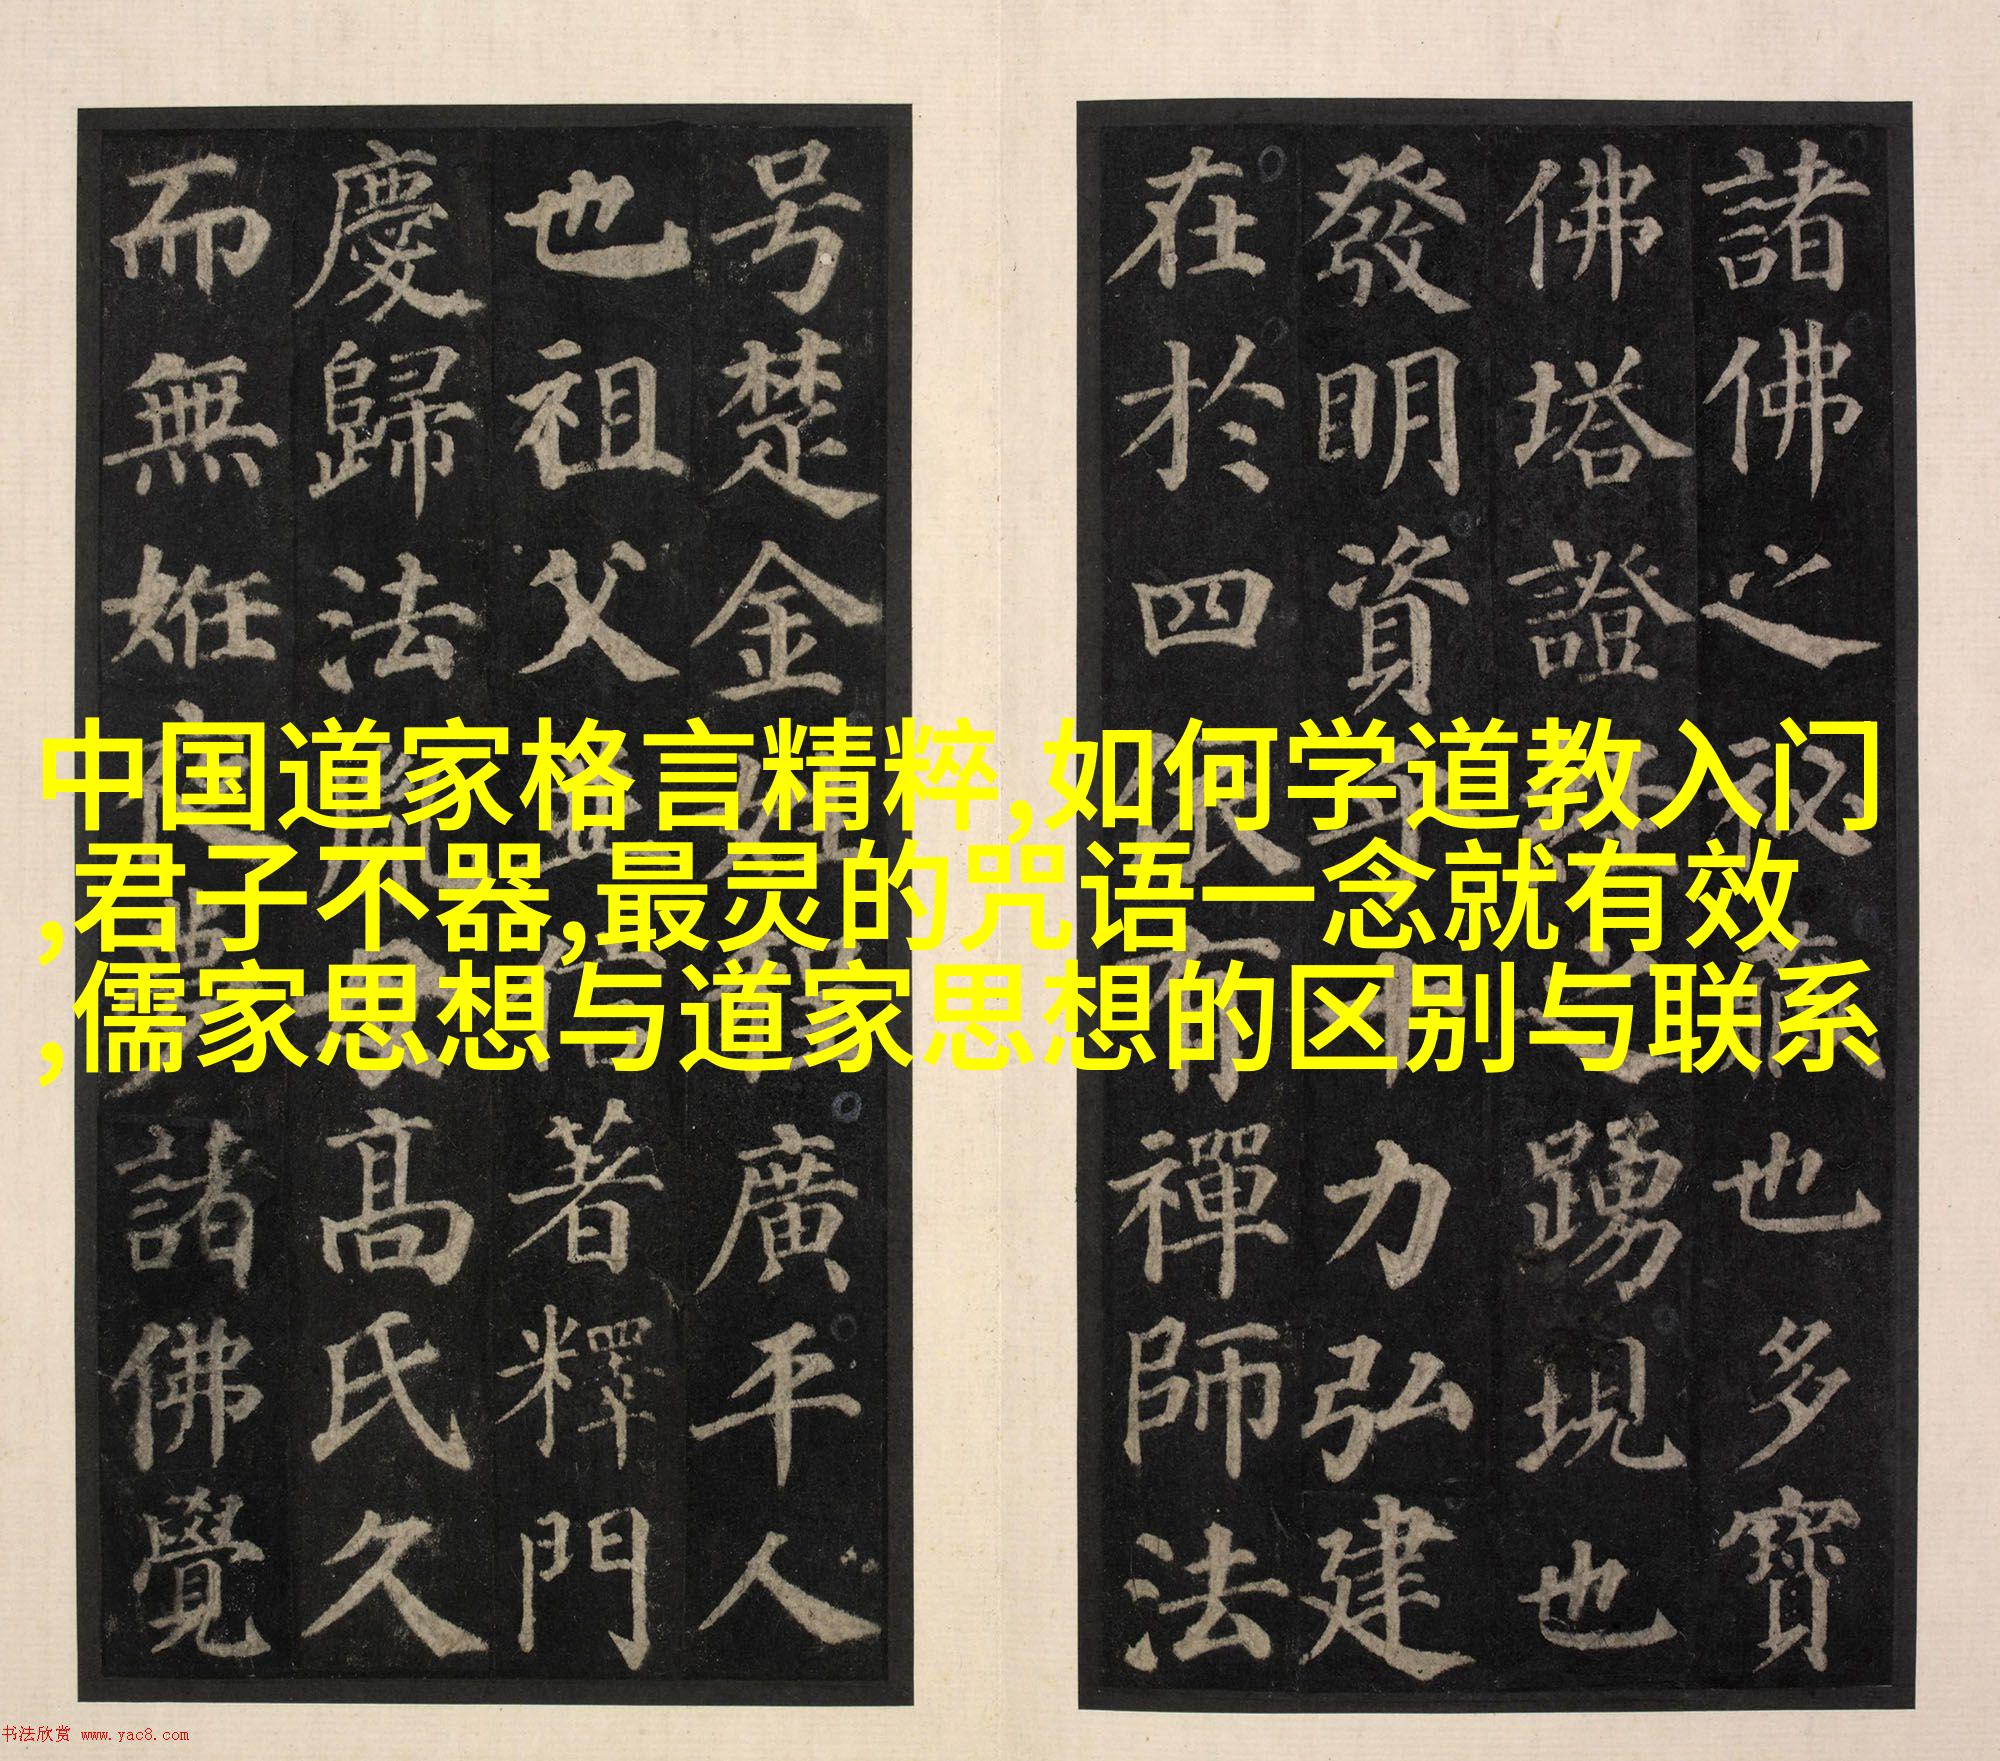 諸佛之秘藏也多寶
佛塔證經之踴現也
發明資乎十力弘建
在於四依有禪師法
号楚金姓程廣平人
也祖父並信著釋門
慶歸法胤母高氏久
而無姙夜夢諸佛覺
中国道家格言精粹,如何学道教入门
,君子不器,最灵的咒语一念就有效
,儒家思想与道家思想的区别与联系
书法欣赏 www.yac8.com